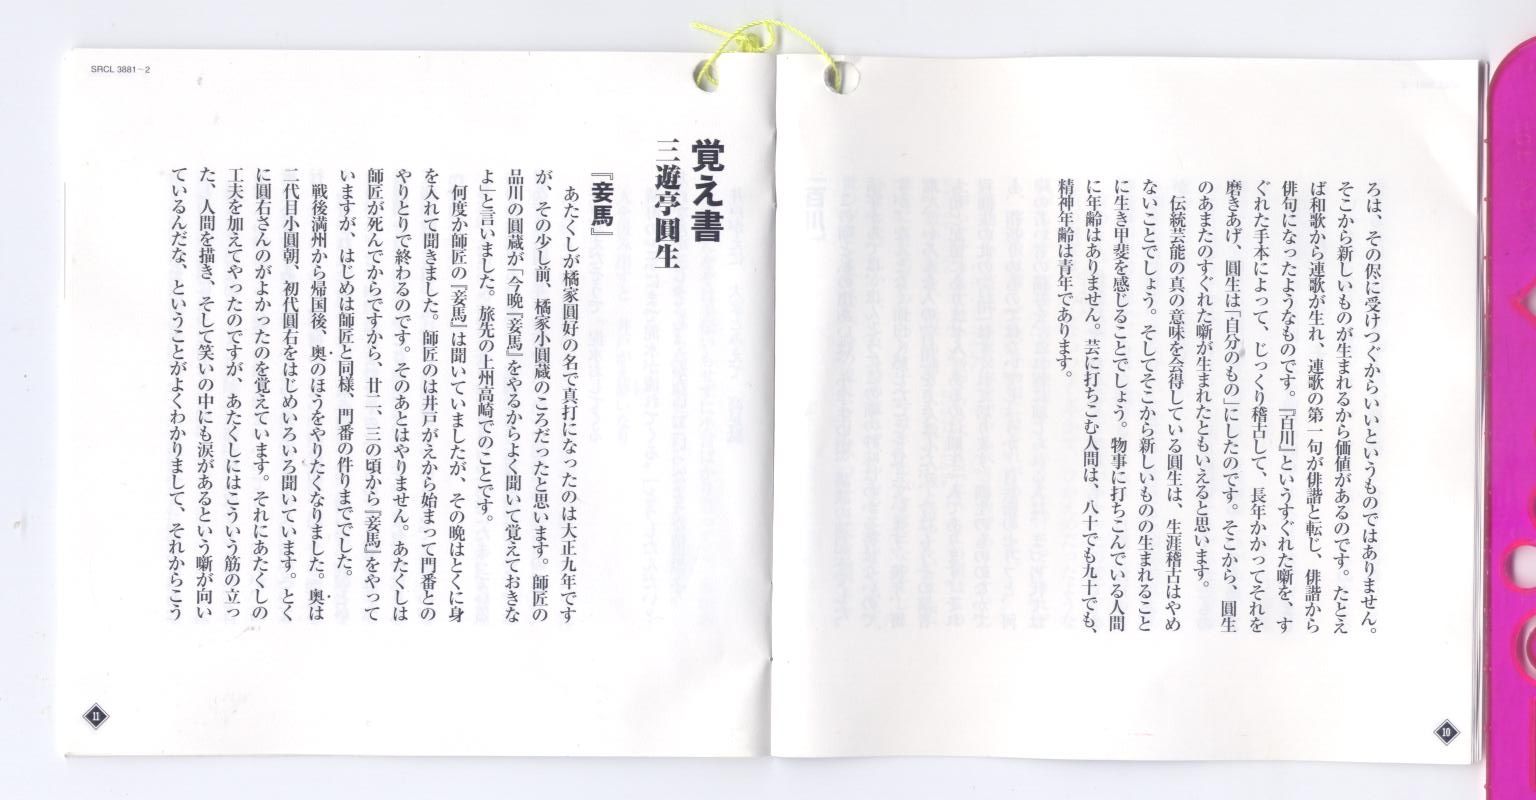 ろは、その侭に受けつぐからいいというものではありません。
そこから新しいものが生まれるから価値があるのです。たとえ
ば和歌から連歌が生れ、連歌の第一句が俳諧と転じ、俳諧から
俳句になったようなものです。『百川』というすぐれた噺を、す
ぐれた手本によって、じっくり稽古して、長年かかってそれを
磨きあげ、圓生は「自分のもの」にしたのです。そこから、圓生
のあまたのすぐれた噺が生まれたともいえると思います。
伝統芸能の真の意味を会得している圓生は、生涯稽古はやめ
ないことでしょう。そしてそこから新しいものの生まれること
に生き甲斐を感じることでしょう。物事に打ちこんでいる人間
に年齢はありません。芸に打ちこむ人間は、八十でも九十でも、
精神年齢は青年であります。
10
覚え書
三遊亭圓生
『妾馬』
あたくしが橘家圓好の名で真打になったのは大正九年です
が、その少し前、橘家小圓蔵のころだったと思います。師匠の
品川の圓蔵が「今晩『妾馬』をやるからよく聞いて覚えておきな
よ」と言いました。旅先の上州高崎でのことです。
何度か師匠の『妾馬』は聞いていましたが、その晩はとくに身
を入れて聞きました。師匠のは井戸がえから始まって門番との
やりとりで終わるのです。そのあとはやりません。あたくしは
師匠が死んでからですから、廿二、三の頃から『妾馬』をやって
いますが、はじめは師匠と同様、門番の件りまででした。
戦後満州から帰国後、奥のほうをやりたくなりました。奥は
二代目小圓朝、初代圓右をはじめいろいろ聞いています。とく
に圓右さんのがよかったのを覚えています。それにあたくしの
工夫を加えてやったのですが、あたくしにはこういう筋の立っ
た、人間を描き、そして笑いの中にも涙があるという噺が向い
ているんだな、ということがよくわかりまして、それからこう
SRCL 3881〜2
11